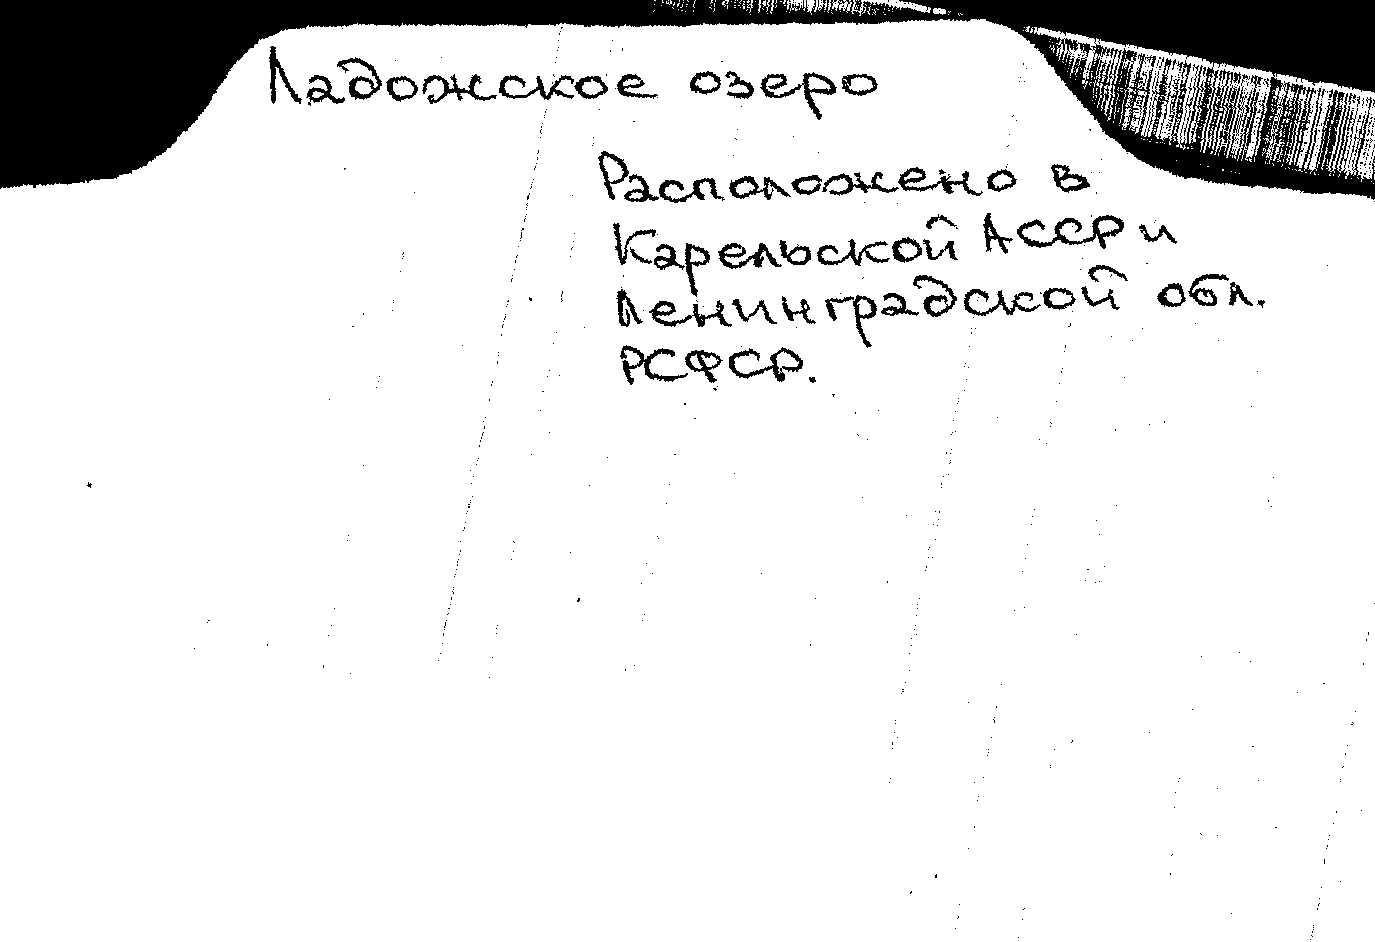 Ладожское озеро
Расположено в
Карельской АССР и
Ленинградской обл.
РСФСР.